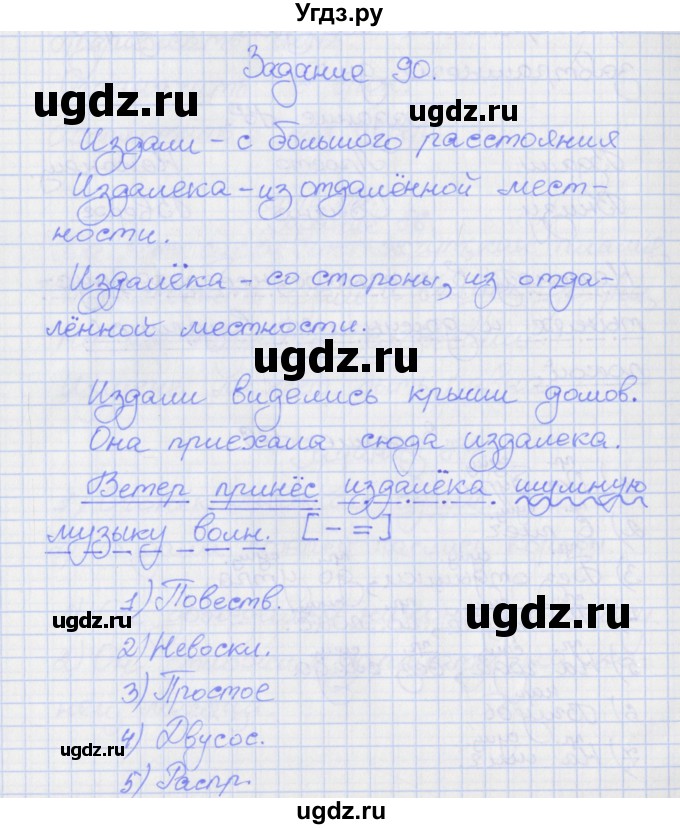 Угдз.ру
Задание 90.
ugdz.ru ugdz.ru
Издали – с большого расстояния
Издалека – из отдалённой мест-
ности.
Издалёка – со стороны, из отда-
лённой местности.
ugdz.ru
Издали виделись крыши домов.
Она приехала сюда издалека.
Ветер принёс издалёка шумную
музыку волн. [ – = ]
1) Повеств.
ugdz.ru ugdz.ru
2) Невоскл.
3) Простое
4) Двусос.
ugdz.ru ugdz.ru
5) Распр.
ugdz.ru